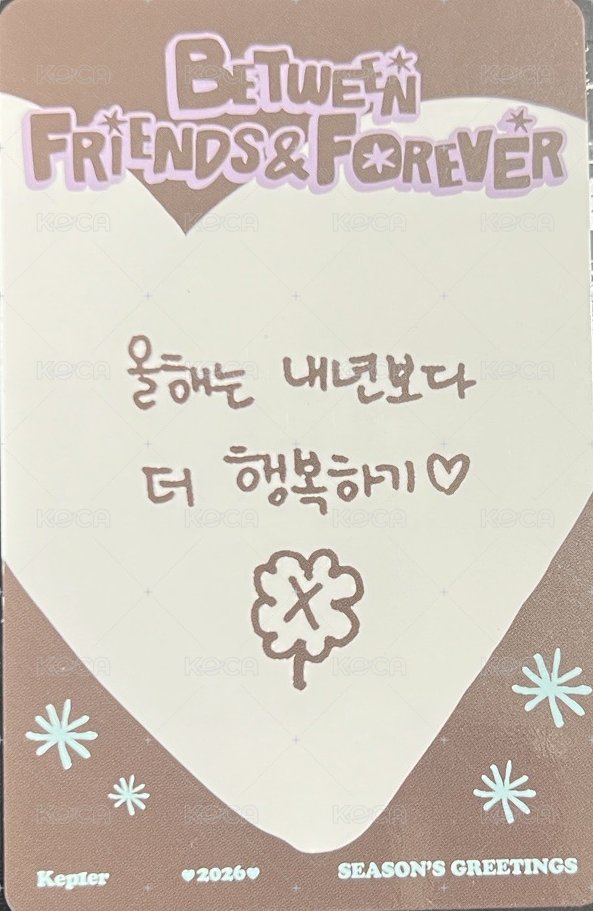 BETWEEN
FRIENDS & FOREVER
올해는 내년보다
더 행복하기♡
Kep1er ♥2026♥ SEASON'S GREETINGS
KOCA